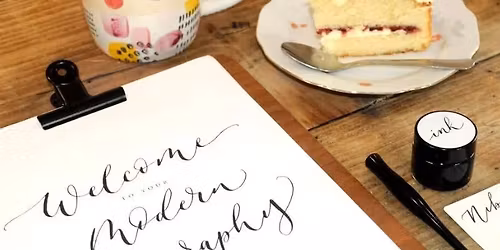 Welcome
TO YOUR
Modern
raphy
ink
Nib